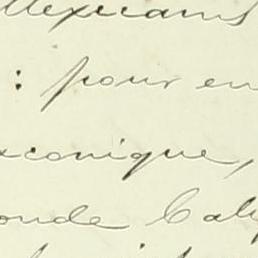 Mexicains
: pour en
conique,
onde Cali